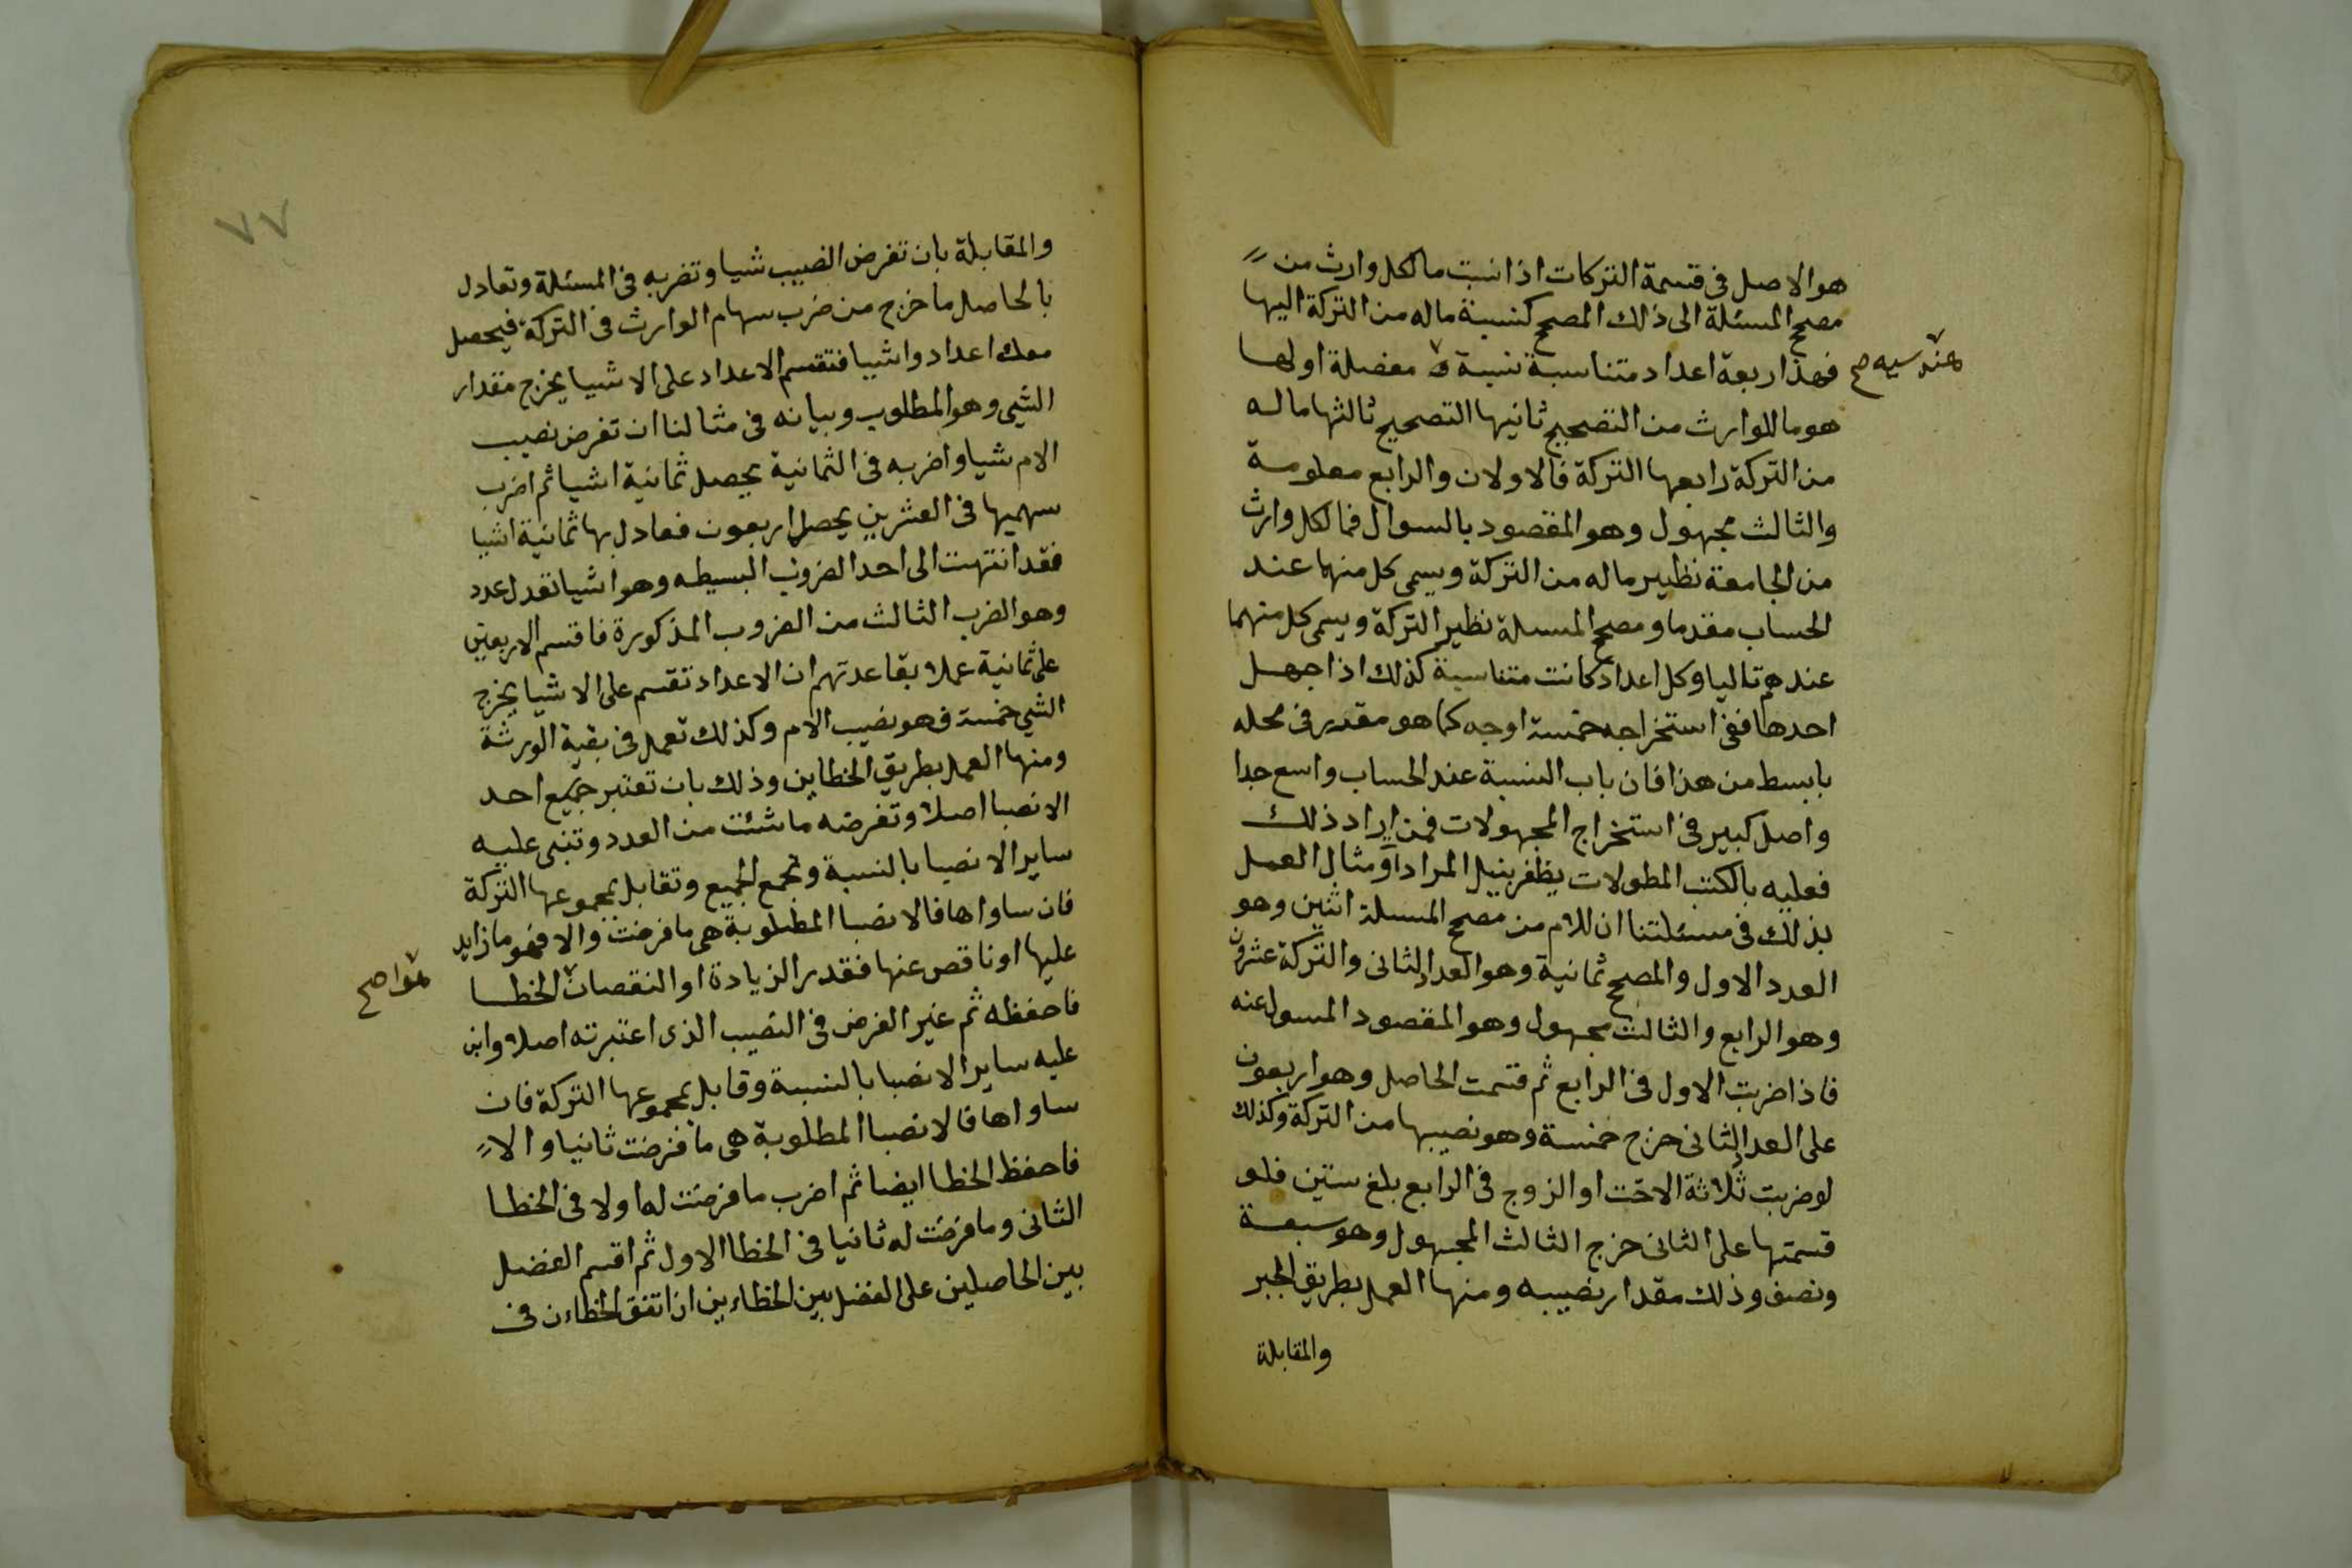 هو الاصل فى قسمة التركات اذا نسبت ما لكل وارث من
مصحح المسئلة الى ذلك المصحح كنسبة ماله من التركة اليها
فهذا اربعة اعداد متناسبة نسبة مفصلة اولها
هندسيه صح
هو ما للوارث من التصحيح ثانيها التصحيح ثالثها ماله
من التركة رابعها التركة فالاولان والرابع معلومة
والثالث مجهول وهو المقصود بالسوال فما لكل وارث
من الجامعة نظير ماله من التركة ويسمى كل منهما عند
الحساب مقدما ومصحح المسىلة نظير التركة ويسمى كل منهما
عندهم تاليا وكل اعداد كانت متناسبة كذلك اذا جهل
احدها ففى استخراجه خمسة اوجه كما هو مقدر فى محله
بابسط من هذا فان باب النسبة عند الحساب واسع جدا
واصل كبير فى استخراج المجهولات فمن اراد ذلك
فعليه بالكتب المطولات يظفر بنيل المرادات ومثال العمل
بذلك فى مسئلتنا ان للام من مصحح المسىلة اثنين وهو
العدد الاول والمصحح ثمانية وهو العدد الثانى والتركة عشرون
وهو الرابع والثالث مجهول وهو المقصود المسول عنه
فاذا ضربت الاول فى الرابع ثم قسمت الحاصل وهو اربعون
على العدد الثانى خرج خمسة وهو نصيبها من التركة وكذلك
لو ضربت ثلاثة الاخت او الزوج فى الرابع بلغ ستين فلو
قسمتها على الثانى خرج الثالث المجهول وهو سبعة
ونصف وذلك مقدار نصيبه ومنها العمل بطريق الجبر
والمقابلة
٧٧
والمقابلة بان تفرض النصيب شيا وتضربه فى المسئلة وتعادل
بالحاصل ما خرج من ضرب سهام الوارث فى التركة فيحصل
معك اعداد واشيا فتقسم الاعداد على الاشيا يخرج مقدار
الشيى وهو المطلوب وبيانه فى مثالنا ان تفرض نصيب
الام شيا واضربه فى الثمانية يحصل ثمانية اشيا ثم اضرب
سهميها فى العشرين يحصل اربعون فعادل بها ثمانية اشيا
فقد انتهت الى احد الضروب البسيطه وهو اشيا تعدل عدد
وهو الضرب الثالث من الضروب المذكورة فاقسم الاربعين
على ثمانية عملا بقاعدتهم ان الاعداد تقسم على الاشيا يخرج
الشيى خمسة فهو نصيب الام وكذلك تعمل فى بقية الورثة
ومنها العمل بطريق الخطاين وذلك بان تعتبر جميع احد
الانصبا اصلا وتفرضه ما شئت من العدد وتبنى عليه
ساير الانصبا بالنسبة وتجمع الجميع وتقابل بمجموعها التركة
فان ساواها فالانصبا المطلوبة هى ما فرضت والا فهو ما زايد
عليها او ناقص عنها فقدر الزيادة او النقصان الخطا
هوا صح
فاحفظه ثم غير الفرض فى النصيب الذى اعتبرته اصلا وابن
عليه ساير الانصبا بالنسبة وقابل بمجموعها التركة فان
ساواها فالانصبا المطلوبة هى ما فرضت ثانيا والا
فاحفظ الخطا ايضا ثم اضرب ما فرضت له اولا فى الخطا
الثانى وما فرضت له ثانيا فى الخطا الاول ثم اقسم الفضل
بين الحاصلين على الفضل بين الخطاءين ان اتفق الخطاءن فى